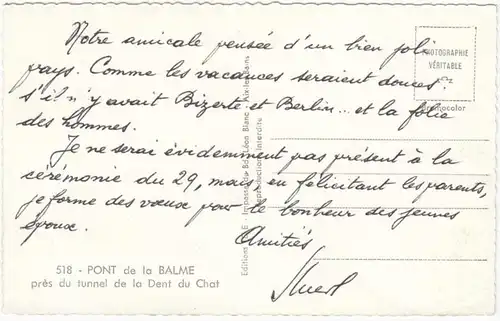 Notre amicale pensée d'un bien joli
pays. Comme les vacances seraient douces
s'il n'y avait Bizerte et Berlin... et la folie
des hommes.
Je ne serai évidemment pas présent à la
cérémonie du 29, mais en félicitant les parents,
je forme des vœux pour le bonheur des jeunes
époux.
Amitiés
PHOTOGRAPHIE
VÉRITABLE
518 - PONT de la BALME
près du tunnel de la Dent du Chat
Reproduction Interdite